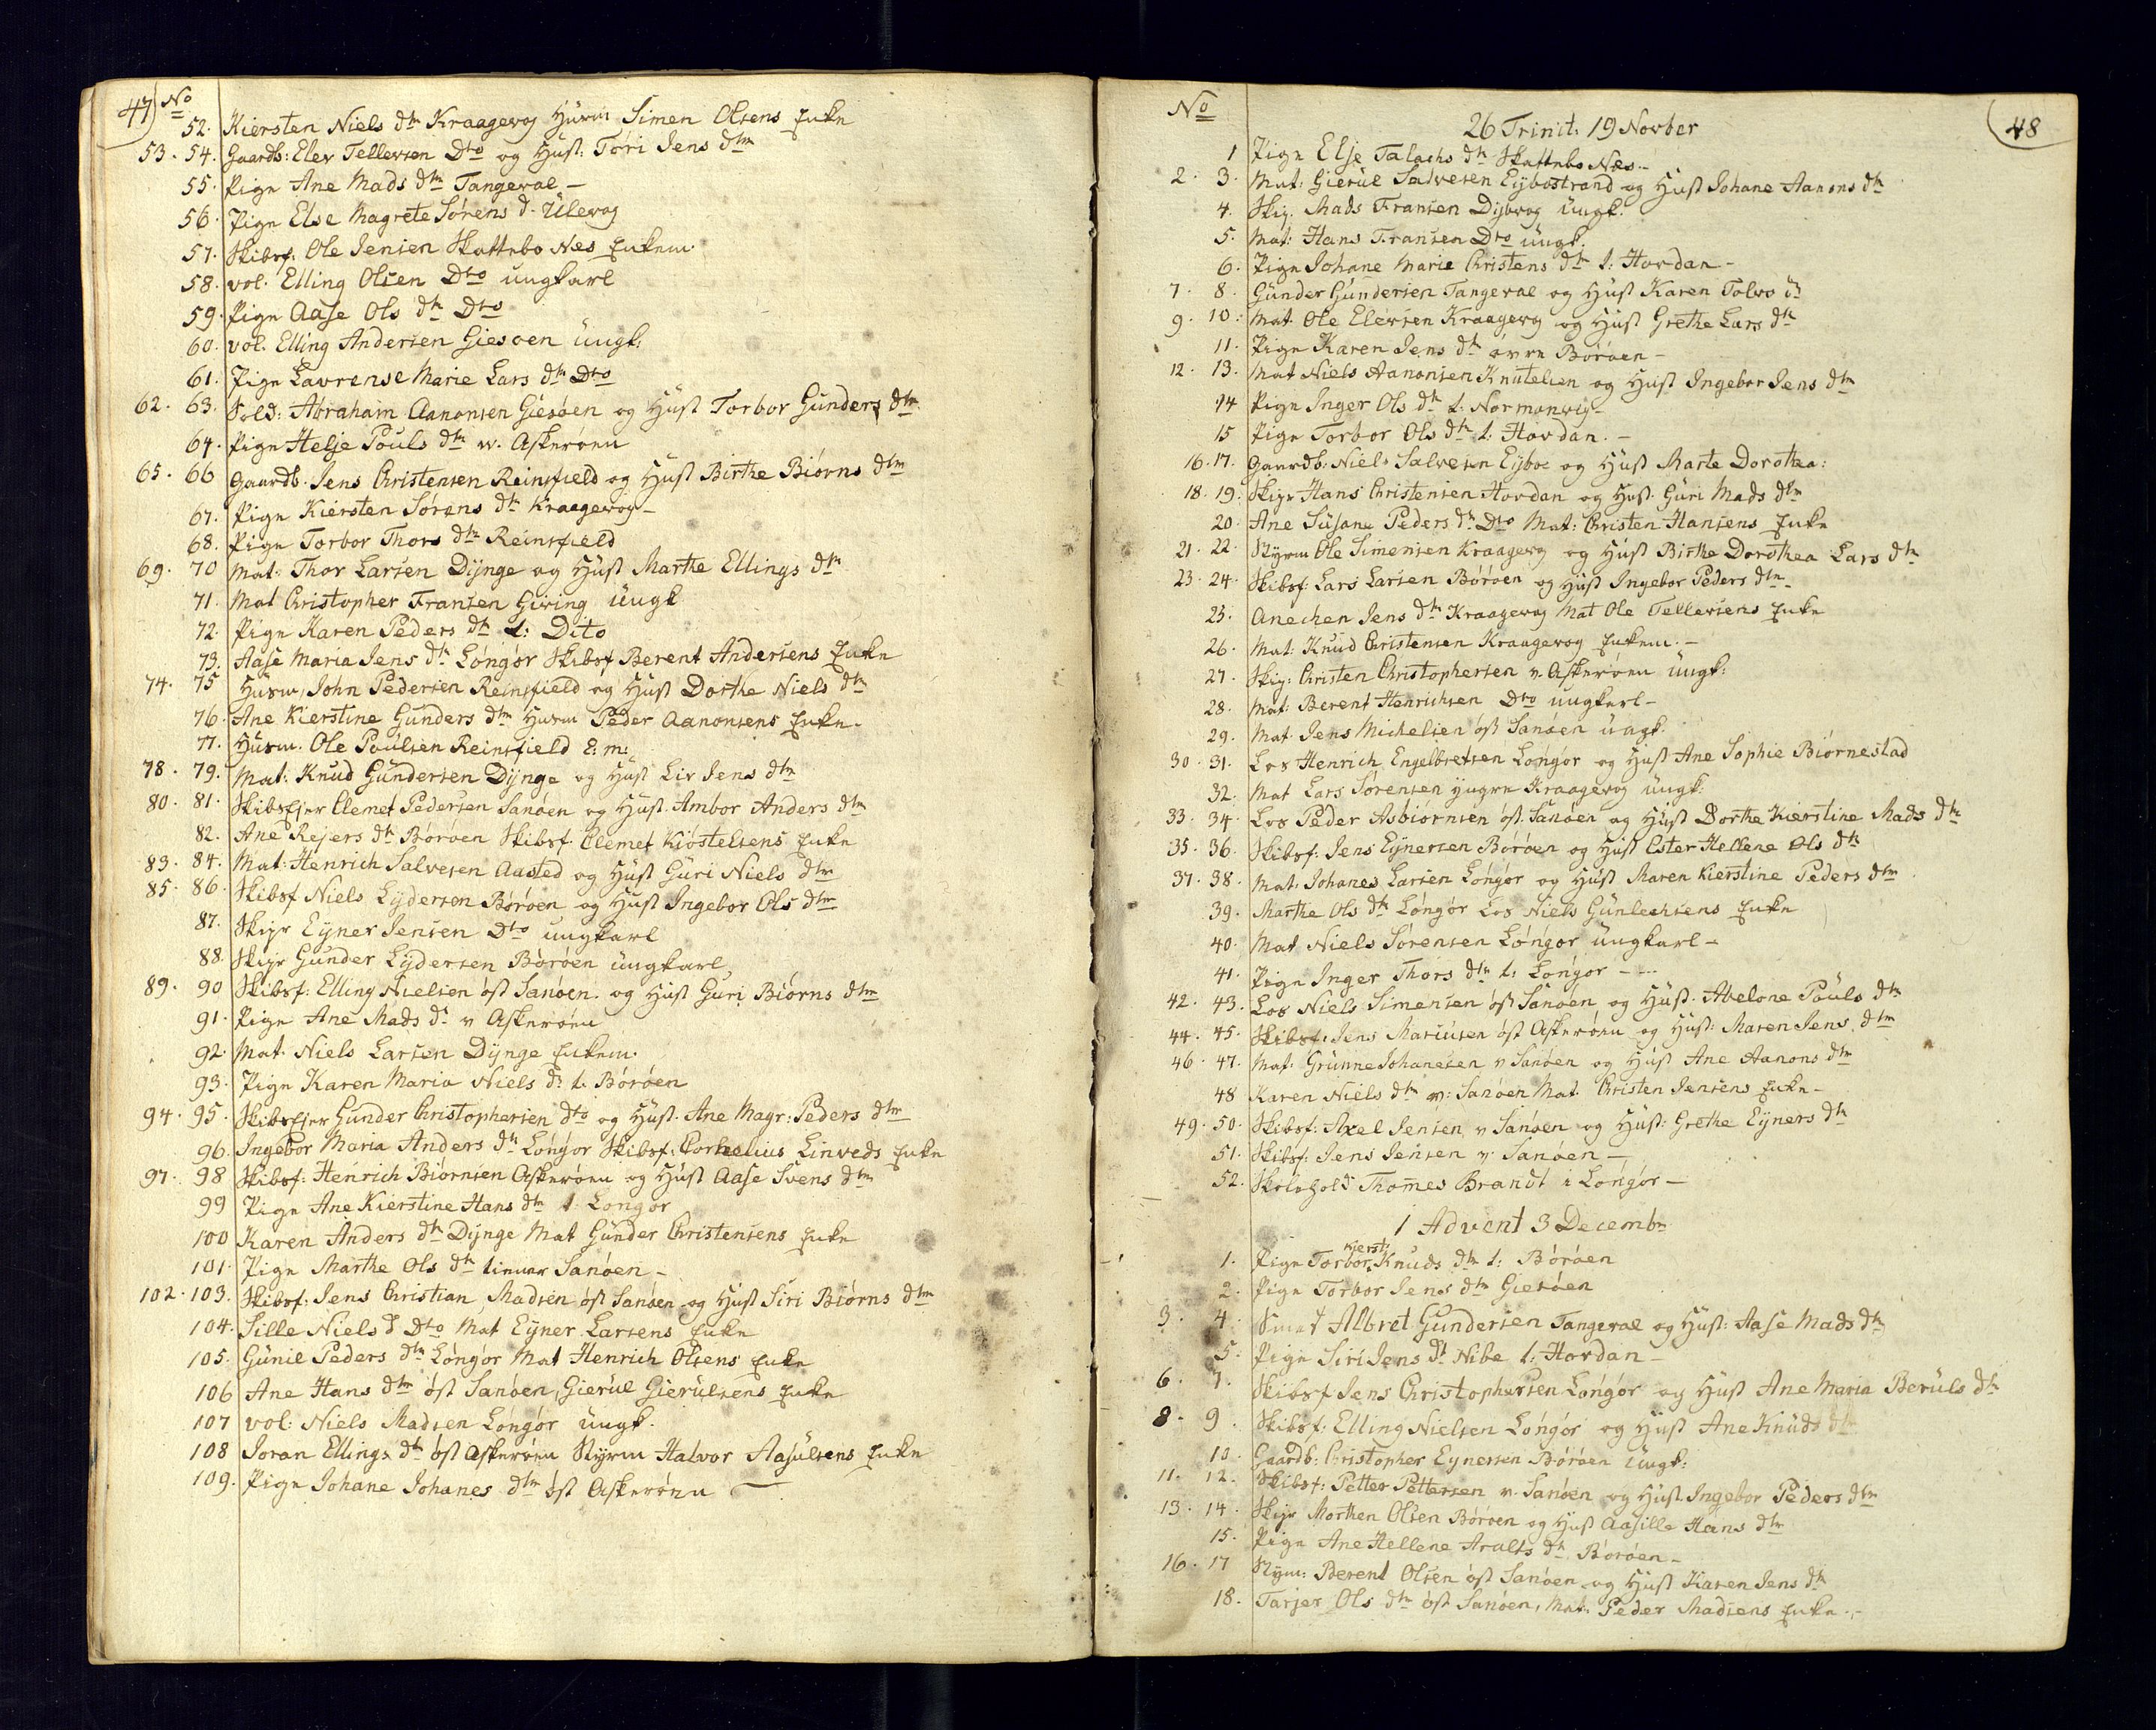 47) No
52. Kiersten Niels dtr Kraagevog Husm Simen Olsens Enke
53. 54. Gaardb: Elev Tellersen Dto og Hust: Töri Jens dtr
55. Pige Ane Mads dtr Tangeval –
56. Pige Else Magrete Sörens d. Ülevog
57. Skibsf: Ole Jensen Skottebo Næs Enkem.
58. vol. Elling Olsen Dto ungkarl
59. Pige Aase Ols dtr Dto
60. vol. Elling Andersen Giesøen üngk:
61. Pige Lavrense Marie Lars dtr Dto
62. 63. Sold: Abraham Aanonsen Giesøen og Hust Torbor Gunders dtr
64. Pige Helje Pouls dtr v. Askerøen
65. 66 Gaardb. Jens Christensen Reinsfield og Hust Birthe Biørns dtr
67. Pige Kiersten Sørens dtr Kraagevog –
68. Pige Torbor Thors dtr Reinsfield
69. 70 Mat: Thor Larsen Dÿnge og Hust Marthe Ellings dtr
71. Mat Christopher Fransen Giving üngk
72. Pige Karen Peders dtr t: Dito
73. Aase Maria Jens dtr Löngör Skibsf Berent Andersens Enke
74. 75 Husm, John Pedersen Reinsfield og Hust Dorthe Niels dtr
76. Ane Kierstine Gunders dtr Husm Peder Aanonsens Enke.
77. Husm. Ole Poulsen Reinsfield E: m:
78. 79. Mat: Knud Gündersen Dÿnge og Hust Liv Jens dtr
80. 81. SkibsEjer Clemet Pedersen Sanøen og Hust. Ambor Anders dtr
82. Ane Rejers dtr Børøen Skibsf. Clemet Kiöstelsens Enke
83. 84. Mat: Henrich Salvesen Aasted og Hust Güri Niels dtr
85. 86. Skibsf Niels Lÿdersen Børøen og Hust Ingebor Ols dtr
87. Skipr Eÿner Jensen Dto ungkarl
88. Skipr Gunder Lÿdersen Børøen üngkarl
89. 90 Skibsf: Elling Nielsen öst Sanøen. og Hust Guri Biørns dtr
91. Pige Ane Mads dr v Askerøen
92. Mat. Niels Larsen Dÿnge Enkem.
93. Pige Karen Maria Niels dr t. Børøen
94. 95. SkibsEjer Gunder Christophersen dto og Hust. Ane Magr: Peders dtr
96. Ingebor Maria Anders dtr Löngör Skibsf: Cornelius Linveds Enke
97. 98 Skibsf: Henrich Biørnsen Askerøen og Hust Aase Svens dtr
99 Pige Ane Kierstine Hans dtr t. Longör
100 Karen Anders dtr Dÿnge Mat Günder Christensens Enke
101. Pige Marthe Ols dtr Sanøen –
102. 103. Skibsf: Jens Christian Madsen öst Sanøen og Hust Siri Biørns dtr
104. Sille Niels d Dto Mat Eÿner Larsens Enke
105. Günil Peders dtr Löngör Mat Henrich Olsens Enke
106 Ane Hans dtr öst Sanøen, Gierül Gierülsens Enke
107 vol: Niels Madsen Löngör üngk.
108 Joran Ellings dtr öst Askerøen Styrm Halvor Aasülsens Enke
109. Pige Johane Johanes dtr öst Askerøen –
No
48
26 Trinit: 19 Novber
1 Pige Elje Talachs dtr Skottebo Næs –
2. 3. Mat: Gierül Salvesen Eÿbostrand og Hust Johane Aanons dtr
4. Skip. Mads Fransen Dÿbvog üngk.
5. Mat: Hans Fransen Dto üngk.
6. Pige Johane Marie Christens dtr t: Hovdan –
7. 8. Günder Gündersen Tangeval og Hust Karen Tolvs dr
9. 10. Mat. Ole Elevsen Kraagevog og Hust Grethe Lars dtr
11. Pige Karen Jens dtr övre Børøen –
12. 13. Mat Niels Aanonsen Knutelien og Hust Ingebor Jens dtr
14 Pige Inger Ols dtr t. Normanvig –
15 Pige Torbor Ols dtr t: Hovdan. –
16. 17. Gaardb: Niels Salvesen Eÿboe og Hust Marte Dorothea:
18. 19. Skipr Hans Christensen Hovdan og Hust. Güri Mads dtr
20 Ane Süsane Peders dtr Dto Mat: Christen Hansens Enke
21. 22. Styrm Ole Simensen Kraagevog og Hust Birthe Dorothea Lars dtr
23. 24. Skibsf. Lars Larsen Børøen og Hust Ingebor Peders dtr
25. Anechen Jens dtr Kraagevog Mat Ole Tellersens Enke
26. Mat: Knud Christensen Kraagevog Enkem. –
27. Skip: Christen Christophersen v. Askerøen üngk:
28. Mat: Berent Henrichsen Dto ungkarl –
29. Mat. Jens Michelsen öst Sanøen üngk.
30. 31. Los Henrich Engelbretsen Löngör og Hust Ane Sophie Biørnestad
32. Mat Lars Sörensen Kraagevog üngk:
33. 34. Los Peder Asbiörnsen öst. Sanøen og Hust Dorthe Kierstine Mads dtr
35. 36. Skibsf. Jens Eÿnersen Børøen og Hust Ester Hellene Ols dtr
37. 38. Mat: Johanes Larsen Löngör og Hust Maren Kierstine Peders dtr
39. Marthe Ols dtr Löngör Los Niels Günlechsens Enke
40. Mat Niels Sörensen Löngör üngkarl –
41. Pige Inger Thors dtr t: Longör – –
42. 43. Los Niels Simensen öst Sanøen og Hust. Abelone Pouls dtr
44. 45. Skibsf: Jens Mariusen öst Askerøen og Hust: Maren Jens dtr
46. 47. Mat: Grünne Johanesen v Sanøen og Hust Ane Aanons dtr
48 Karen Niels dtr v: Sanøen Mat. Christen Jensens Enke –
49. 50. Skibsf: Axel Jensen v Sanøen og Hust: Grethe Eÿners dtr
51. Skibsf: Jens Jensen v. Sanøen –
52. Skolehold Thomes Brandt i Löngör –
1 Advent 3 Decembr
1. Pige Torbor Kierst: Knuds dtr t: Børøen
2. Pige Torbor Jens dtr Giesøen
3. 4. Smed Albret Gundersen Tangeval og Hust: Aase Mads dtr
5. Pige Siri Jens dt Nibe t: Hovdan –
6. 7. Skibsf Jens Christophersen Löngör og Hust Ane Maria Berüls dtr
8. 9. Skibsf: Elling Nielsen Löngör og Hust Ane Knüds dtr
10. Gaardb: Christopher Eÿnersen Børøen üngk:
11. 12. Skibsf: Petter Pettersen v. Sanøen og Hust Ingebor Peders dtr
13. 14. Skipr Morthen Olsen Børøen og Hust Aasille Hans dtr
15. Pige Ane Hellene Aralts dtr Børøen –
16. 17 Styrm: Berent Olsen öst Sanøen og Hust Karen Jens dtr
18. Tarjer Ols dtr öst Sanøen, Mat: Peder Madsens Enke –